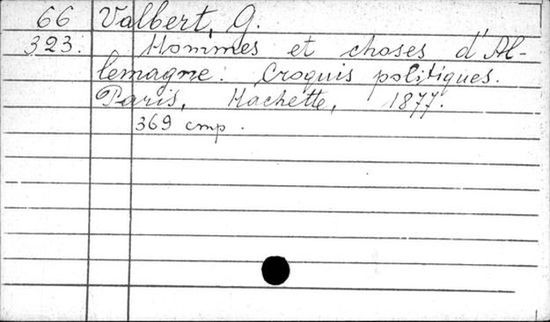 66 Valbert, G.
323. Hommes et choses d'Al-
lemagne. Croquis politiques.
Paris, Hachette, 1877.
369 стр.